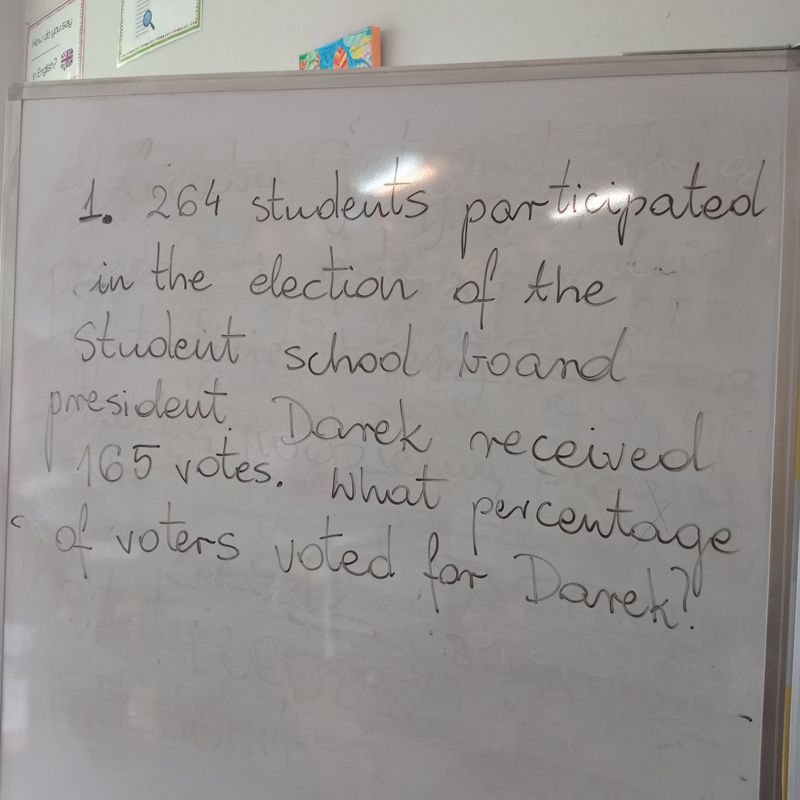 How do you say
in English?
1. 264 students participated
in the election of the
Student school board
president. Darek received
165 votes. What percentage
of voters voted for Darek?